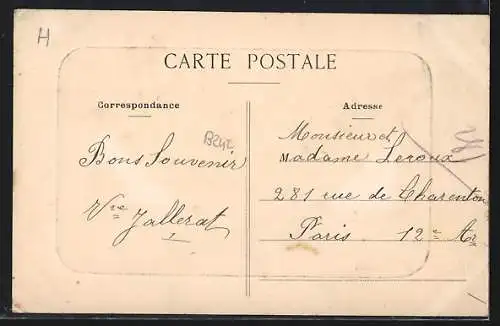 H
CARTE POSTALE
Correspondance
Bons Souvenir
Vve Jallerat
B242
Adresse
Monsieur et
Madame Leroux
281 rue de Charenton
Paris 12e Ar